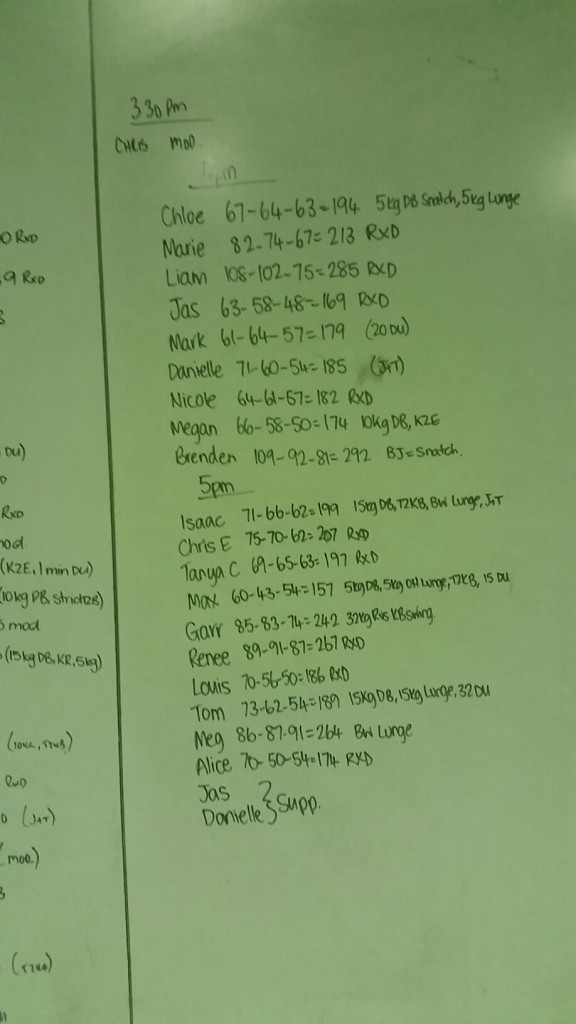 0 RXD
9 RXD
DU)
RXD
mod
(K2E, 1 min DU)
(10kg DB, strict2B)
mod
(15kg DB, KR, 5kg)
RXD
(J+T)
(mod.)
330pm
CHRIS MOD.
4pm
Chloe 67-64-63=194 5kg DB Snatch, 5kg Lunge
Marie 82-74-67=213 RXD
Liam 108-102-75=285 RXD
Jas 63-58-48=169 RXD
Mark 61-64-57=179 (20 DU)
Danielle 71-60-54=185 (J+T)
Nicole 64-61-57=182 RXD
Megan 66-58-50=174 10kg DB, K2E
Brenden 109-92-81=292 BJ=Snatch.
5pm
Isaac 71-66-62=199 15kg DB, T2KB, BW Lunge, J+T
Chris E 75-70-62=207 RXD
Tanya C 69-65-63=197 RXD
Max 60-43-54=157 5kg DB, 5kg OH Lunge, T2KB, 15 DU
Garr 85-83-74=242 32kg Rus KB Swing.
Renee 89-91-87=267 RXD
Louis 70-56-50=186 RXD
Tom 73-62-54=189 15kg DB, 15kg Lunge, 32 DU
Meg 86-87-91=264 BW Lunge
Alice 70-50-54=174 RXD
Jas
Danielle } Supp.